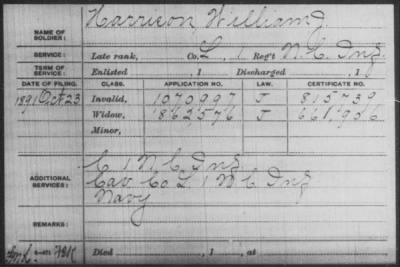 NAME OF SOLDIER: Harrison, William J.
SERVICE: Late rank, Co. L, 1 Reg't N.C. Inf.
TERM OF SERVICE: Enlisted , 1 Discharged , 1
DATE OF FILING. CLASS. APPLICATION NO. LAW. CERTIFICATE NO.
1891 Oct 23 Invalid, 1070997 J 815739
Widow, 862576 J 661906
Minor,
C 1 N C Inf
ADDITIONAL SERVICES: Cav Co L 1 N C Inf
Navy
REMARKS:
Died , 1 , at